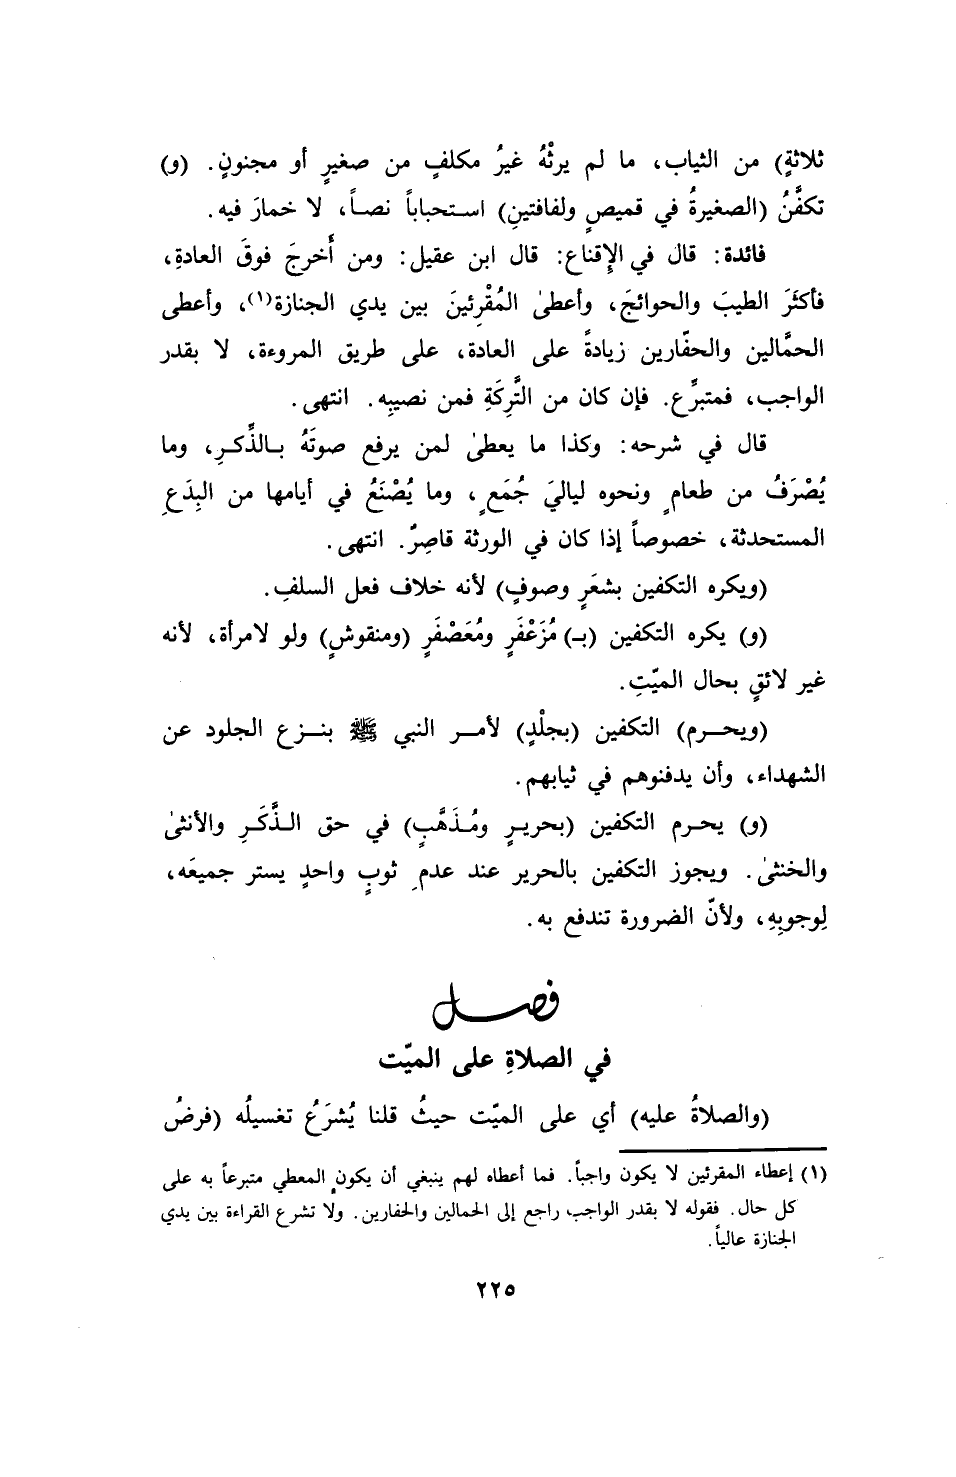 ثلاثةٍ) من الثياب، ما لم يرثْهُ غيرُ مكلفٍ من صغيرٍ أو مجنونٍ. (و)
تكفَّنُ (الصغيرةُ في قميصٍ ولفافتينِ) استحباباً نصاً، لا خمارَ فيه.
فائدة: قال في الإقناع: قال ابن عقيل: ومن أخرجَ فوقَ العادةِ،
فأكثَرَ الطيبَ والحوائجَ، وأعطىٰ المُقْرِئينَ بين يدي الجنازة(١)، وأعطى
الحمَّالين والحفّارين زيادةً على العادة، على طريق المروءة، لا بقدر
الواجب، فمتبرِّع. فإن كان من التَّرِكَةِ فمن نصيبِه. انتهى.
قال في شرحه: وكذا ما يعطىٰ لمن يرفع صوتَهُ بالذَّكرِ، وما
يُصْرَفُ من طعامٍ ونحوه لياليَ جُمَعٍ، وما يُصْنَعُ في أيامها من البِدَعِ
المستحدثة، خصوصاً إذا كان في الورثة قاصِرٌ. انتهى.
(ويكره التكفين بشعَرٍ وصوفٍ) لأنه خلاف فعل السلفِ.
(و) يكره التكفين (بـ) مُزَعْفَرٍ ومُعَصْفَرٍ (ومنقوشٍ) ولو لامرأة، لأنه
غير لائقٍ بحال الميّتِ.
(ويحرم) التكفين (بجلْدٍ) لأمر النبي ﷺ بنزع الجلود عن
الشهداء، وأن يدفنوهم في ثيابهم.
(و) يحرم التكفين (بحريرٍ ومُذَهَّبٍ) في حق الذَّكَرِ والأنثىٰ
والخنثىٰ. ويجوز التكفين بالحرير عند عدمِ ثوبٍ واحدٍ يستر جميعَه،
لِوجوبِهِ، ولأنّ الضرورة تندفع به.
فصل
في الصلاةِ على الميّت
(والصلاةُ عليه) أي على الميّت حيثُ قلنا يُشرَعُ تغسيلُه (فرضُ
(١) إعطاء المقرئين لا يكون واجباً. فما أعطاه لهم ينبغي أن يكون المعطي متبرعاً به على
كل حال. فقوله لا بقدر الواجب راجع إلى الحمالين والحفارين. ولا تشرع القراءة بين يدي
الجنازة عالياً.
٢٢٥